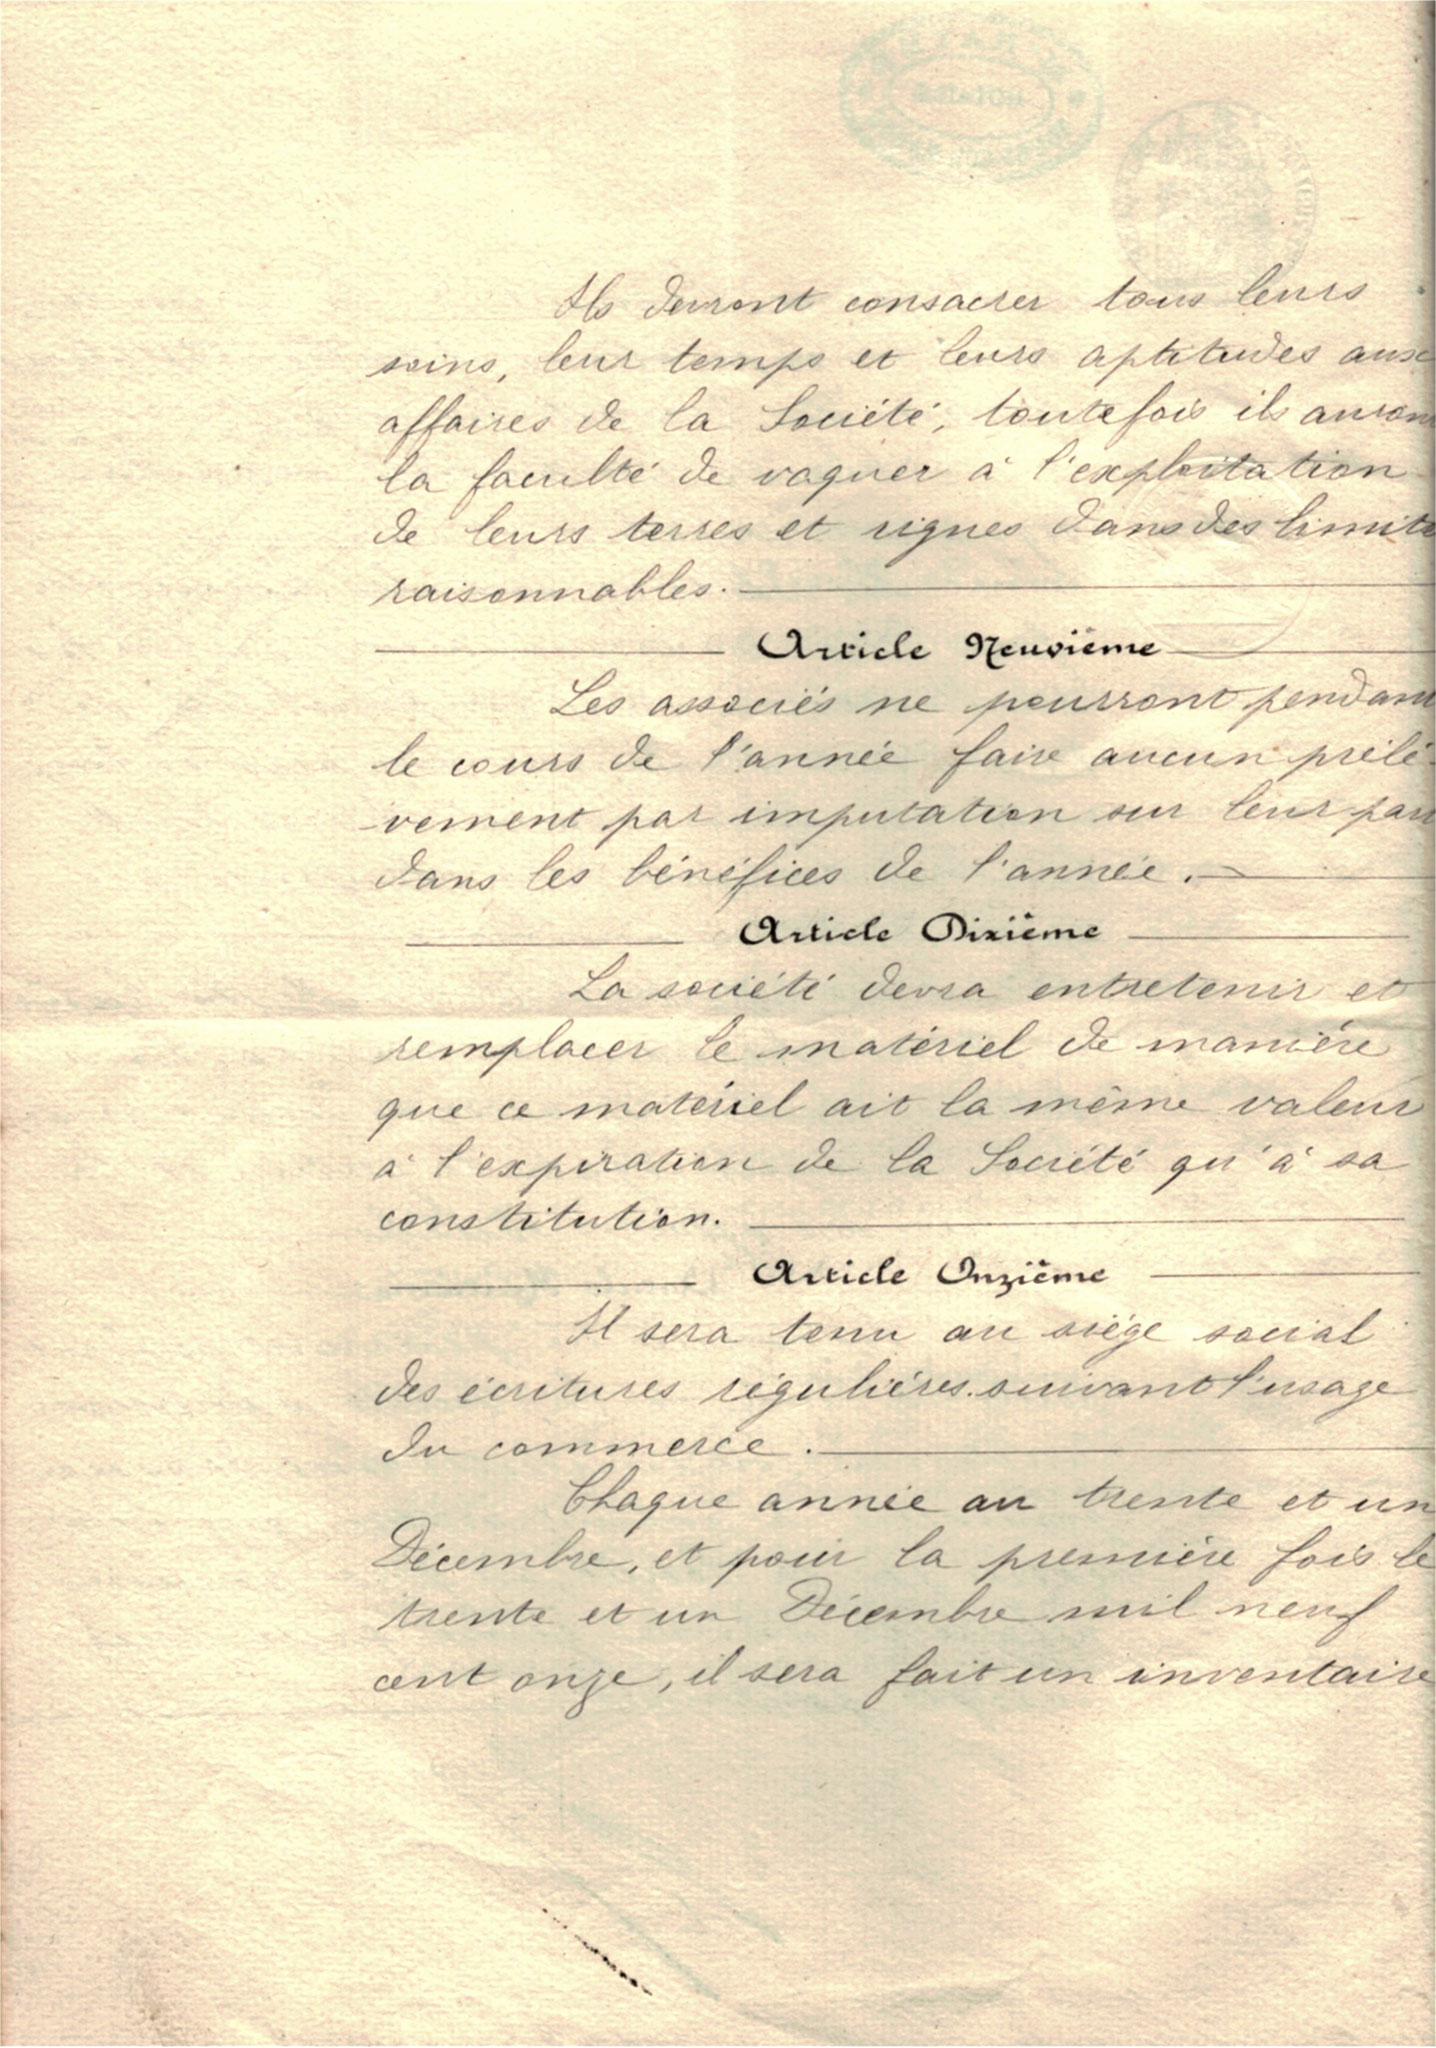 Ils devront consacrer tous leurs
soins, leur temps et leurs aptitudes aux
affaires de la Société, toutefois ils auron
la faculté de vaquer à l'exploitation
de leurs terres et vignes dans des limite
raisonnables.
Article Neuvième
Les associés ne pourront pendant
le cours de l'année faire aucun prélè-
vement par imputation sur leur part
dans les bénéfices de l'année.
Article Dixième
La société devra entretenir et
remplacer le matériel de manière
que ce matériel ait la même valeur
à l'expiration de la Société qu'à sa
constitution.
Article Onzième
Il sera tenu au siège social
des écritures régulières suivant l'usage
du commerce.
Chaque année au trente et un
Décembre, et pour la première fois le
trente et un Décembre mil neuf
cent onze, il sera fait un inventaire